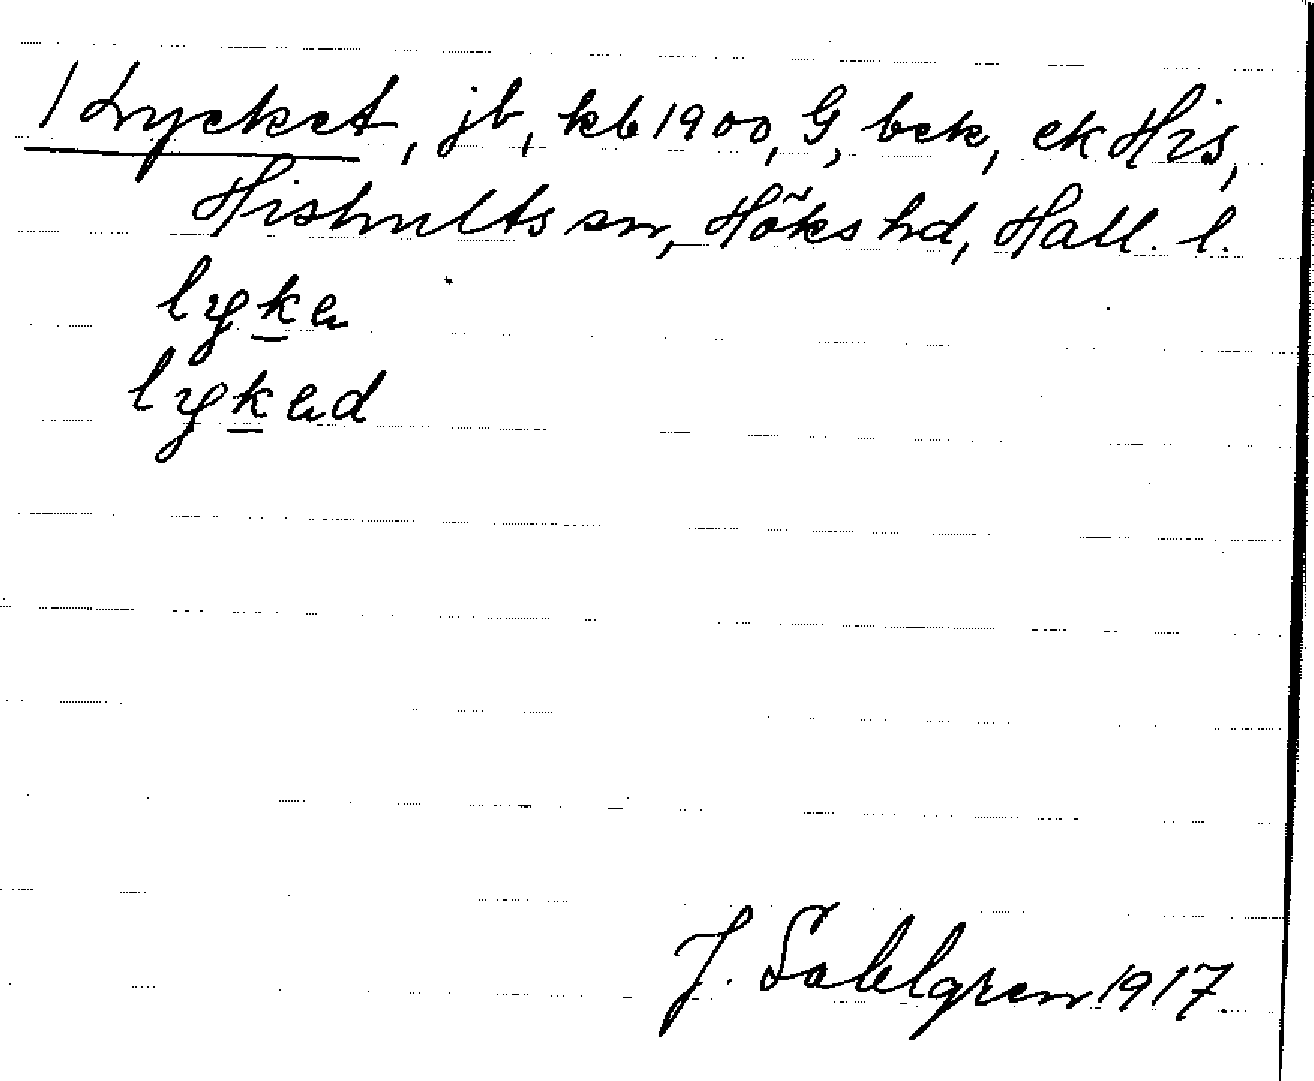 / Lycket, jb, kb 1900, G, bek, ek His,
Hishults sn, Höks hd, Hall. l.
lyka
lykad
J. Sahlgren 1917